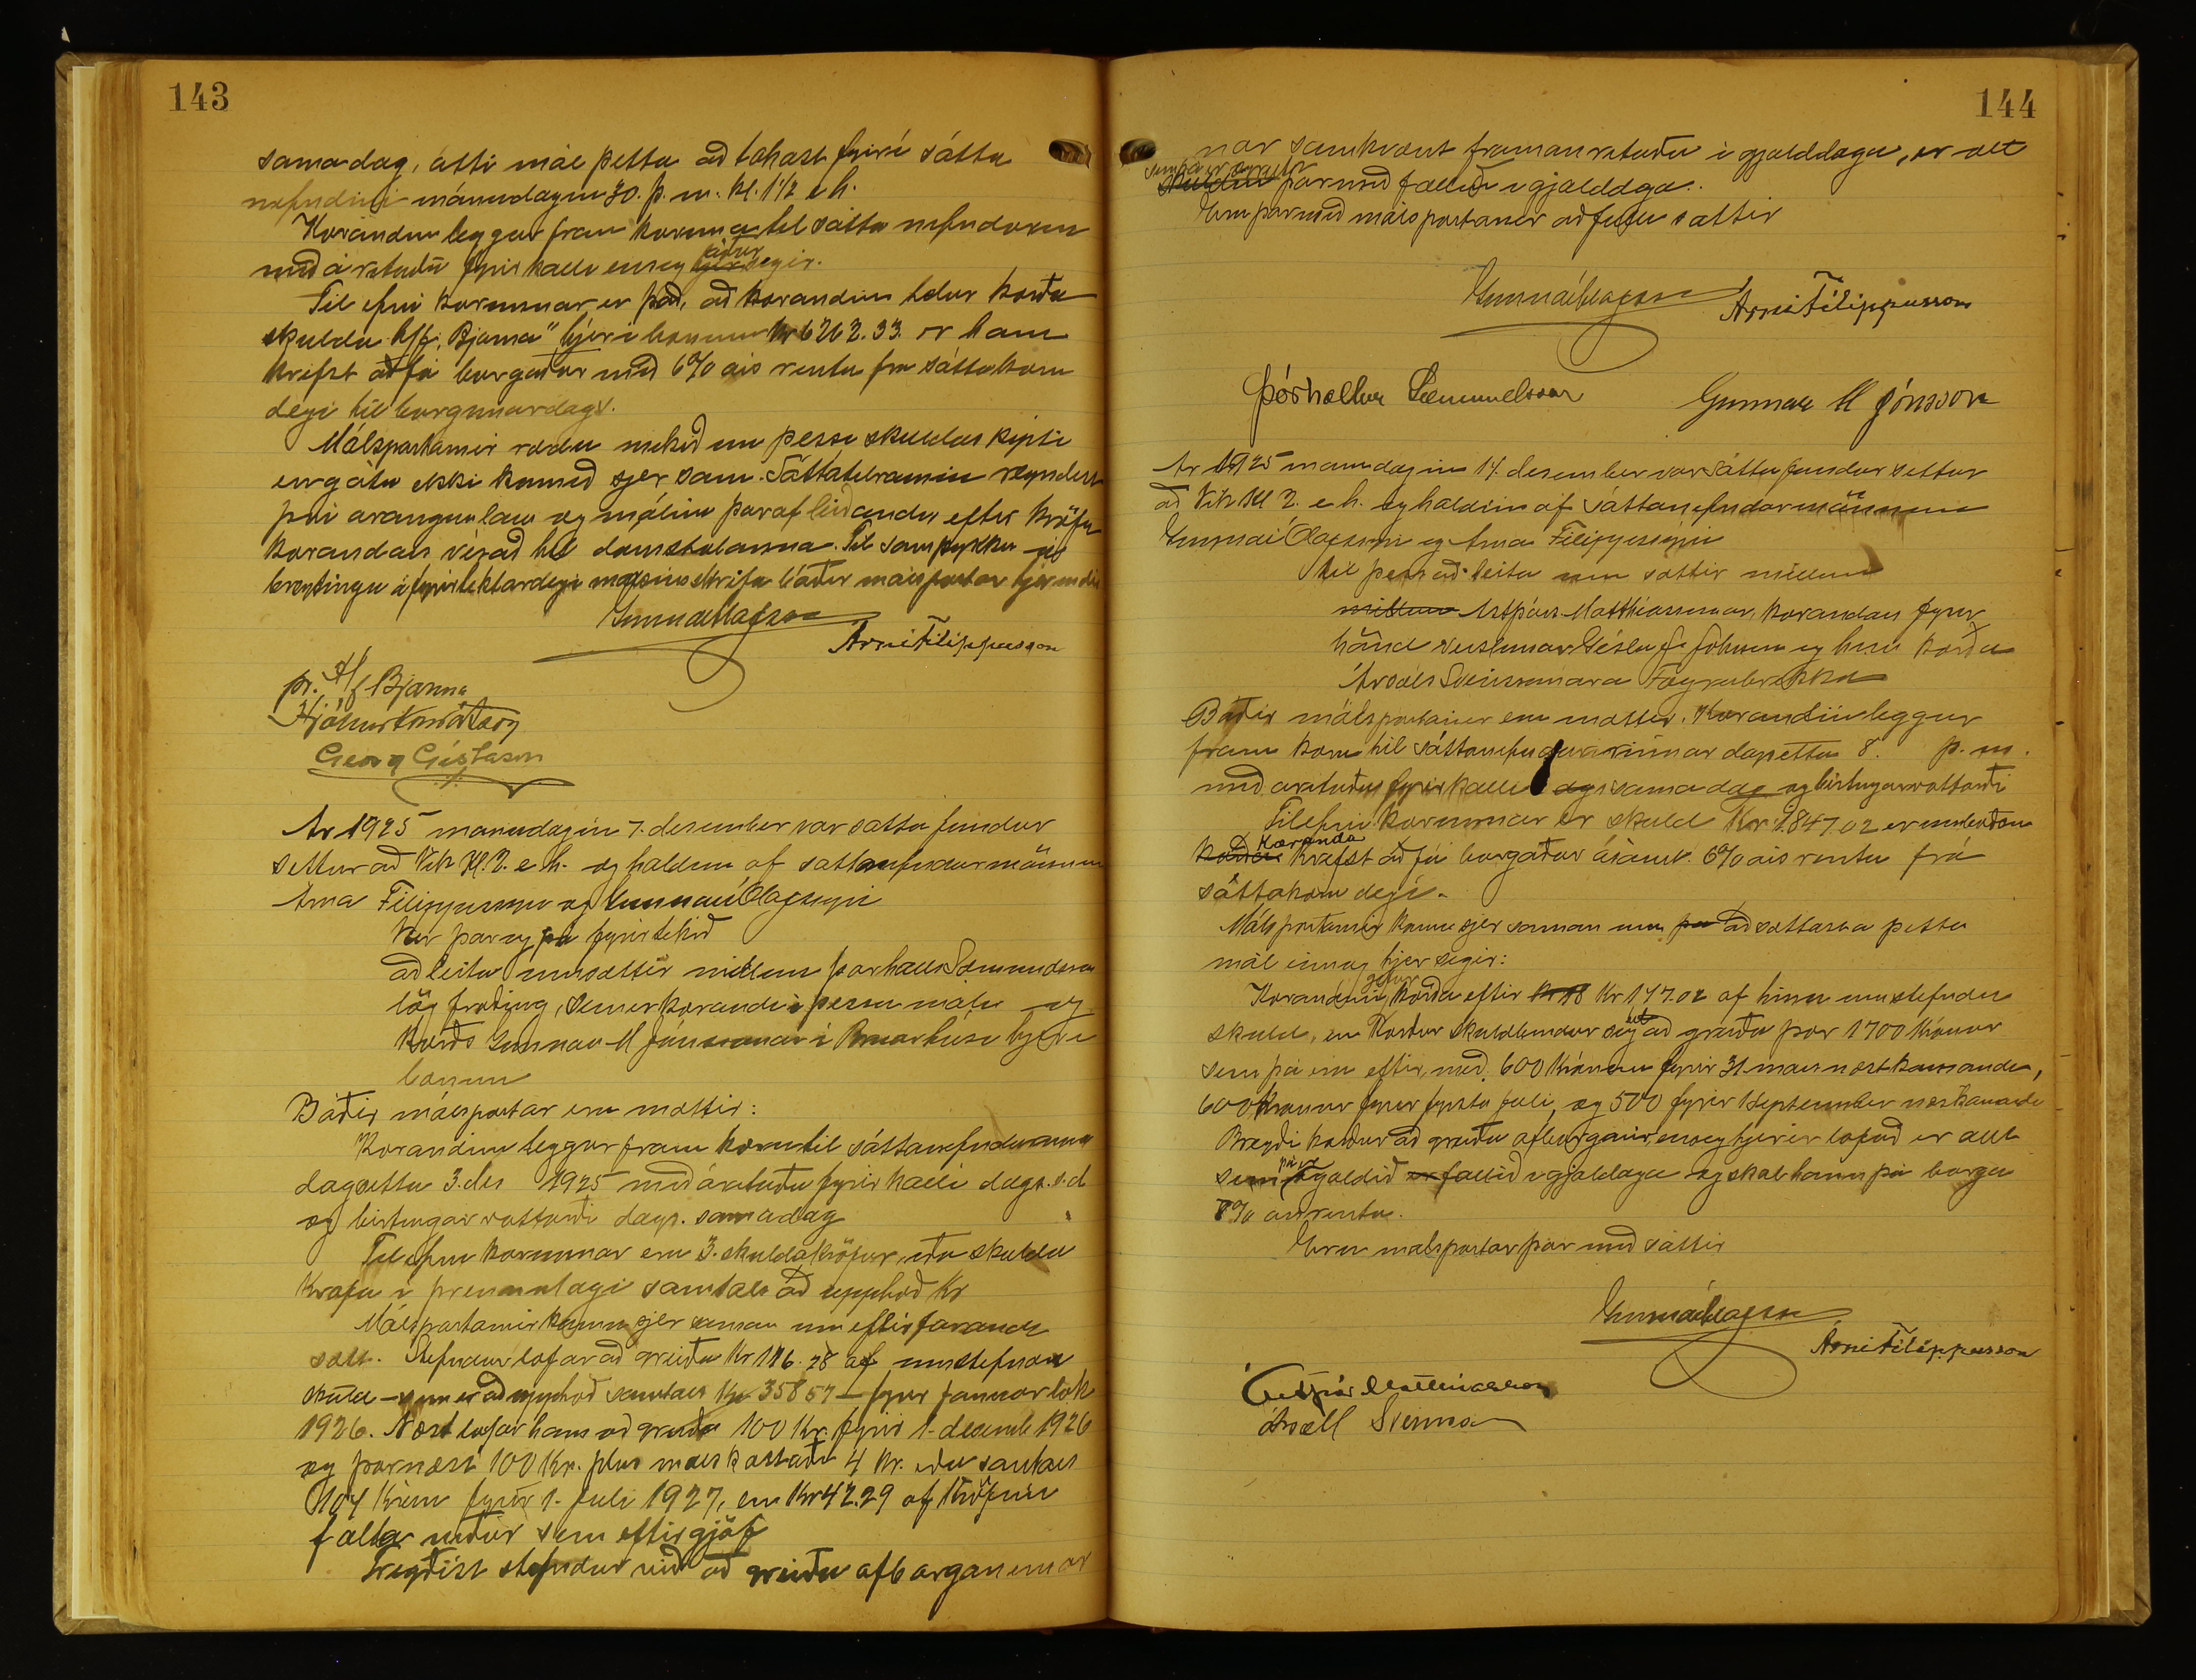 143
sama dag, átti mál þetta að takast fyrir í sátta
nefndinni mánudaginn 30. þ. m. kl. 1 1/2 e h.
Kærandinn leggur fram kæruna til sátta nefndarinnar
með áritaðri fyrirkalli eins og áður segir.
Tilefni kærunnar er það, að kærandinn telur kærða
skulda h/f "Bjarma" hjer í bænum kr 6262.33 er hann
krefst að fá borgaðar með 6% árs rentu frá sáttakæru
degi til borgunardags.
Málspartarnir ræddu mikið um þessi skuldaskipti
en gátu ekki komið sjer sam. Sáttatilraunin reyndist
því árangurslaus og málinu þar af leiðandi eftir kröfu
kærandans vísað til domstolanna. Til samþykkis
breytingu á fyrirtektardegi málsins skrifa báðir málspartar hjer undir
Gunnar Ólafsson
Árni Filippusson
pr. H/f Bjarma
Hjálmur Konráðsson
Georg Gíslason
Ár 1925 mánudaginn 7. desember var sátta fundur
settur að Vík kl. 2. e. h. og haldinn af sáttanefndarmönnum
Árna Filippussyni og Gunnari Ólafssyni
Var þar og þá fyrirtekið
að leita um sættir millum Þorhalls Sæmundssonar
lögfræðing, sem er kærandi í þessu máli og
kærðs Gunnar M Jónssonar í Brúarhúsi hjer í
bænum
Báðir málspartar eru mættir:
Kærandinn leggur fram kæru til sáttanefndarinnar
dagsetta 3. des 1925 með áritaðu fyrirkalli dags. s. d
og birtingarvottorði dags. sama dag
Tilefni kærunnar eru 3. skuldakröfur, eða skulda
krafa í þrennu lagi samtals að upphæð kr
Málspartarnir koma sjer saman um eftirfarandi
sætt. Stefndur lofar að greiða kr 116.28 af umstefndri
skuld - sem er að upphæð samtals kr 358 57 - fyrir januar lok
1926. Næst lofar hann að greiða 100 kr. fyrir 1. desemb 1926
og þarnæst 100 kr. plus máls kostnað 4 kr. eða samtals
104 krónur fyrir 1. Juli 1927, en kr 42.29 af kröfunni
falla niður sem eftirgjöf
Bregðist stefndur við að greiða afborganirnar
144
nar samkvæmt framanrituðu í gjalddaga, er allt
sem þá er ógreitt þarmeð fallið í gjalddaga.
Eru þarmeð málspartarnir að fullu sáttir
Gunnar Ólafsson
Árni Filippusson
Þórhallur Sæmundsson
Gunnar M Jónsson
Ár 1925 mánudaginn 14. desember var sátta fundur settur
að Vík kl 2. e. h. og haldinn af sáttanefndarmönnum
Gunnari Ólafssyni og Árna Filippussyni
til þess að leita um sættir millum
millum Ástþórs Matthíassonar, kærandans fyrir
hönd verslunar Gísla J. Johnsen og hins kærða
Ársæls Sveinssonar á Fögrubrekku
Báðir málspartarnir eru mættir. Kærandinn leggur
fram kæru til sáttanefndarinnar dagsetta 8. þ. m.
með árituðu fyrirkalli dags sama dag og birtingarvottorði
Tilefni kærunnar er skuld kr 1847.02 er umboðsm
kæranda krefst að fá borgaðar ásamt 6% árs rentu frá
sáttakæru degi.
Málspartarnir koma sjer saman um þa að sættast á þetta
mál eins og hjer segir:
Kærandinn gefur kærða eftir kr 18 kr 147.02 af hinni umstefndu
skuld, en kærður skuldbindur sig til að greiða þær 1700 krónur
sem þá eru eftir, með 600 krónum fyrir 31. mars næstkomandi,
600 krónur fyrir fyrsta júlí, og 500 fyrir 1 september næstkomandi
Bregði kærður að greiða afborganir eins og hjer er lofað er allt
sem þá er ógoldið er fallið í gjalddaga og skal hann þá borga
8% ársrentu.
Eru málspartar þar með sáttir
Gunnar Ólafsson
Árni Filippusson
Ástþór Matthíasson
Ársæll Sveinsson